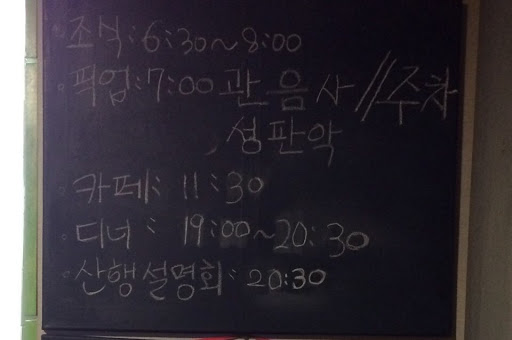 · 조식: 6:30~8:00
· 픽업: 7:00 관음사 // 주차
성판악
· 카페: 11:30
· 디너: 19:00~20:30
· 산행설명회: 20:30